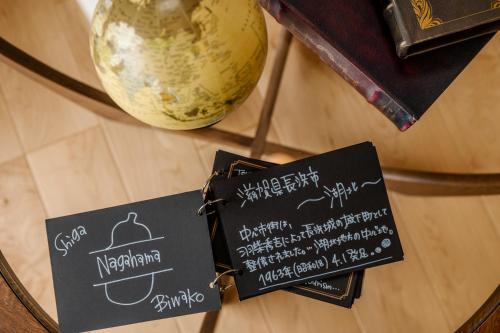 Shiga
Nagahama
Biwako
滋賀県長浜市
〜湖北〜
中心市街は、
羽柴秀吉によって長浜城の城下町として
整備されました。… 湖北地方の中心地。
1963年(昭和 4.1 発足。